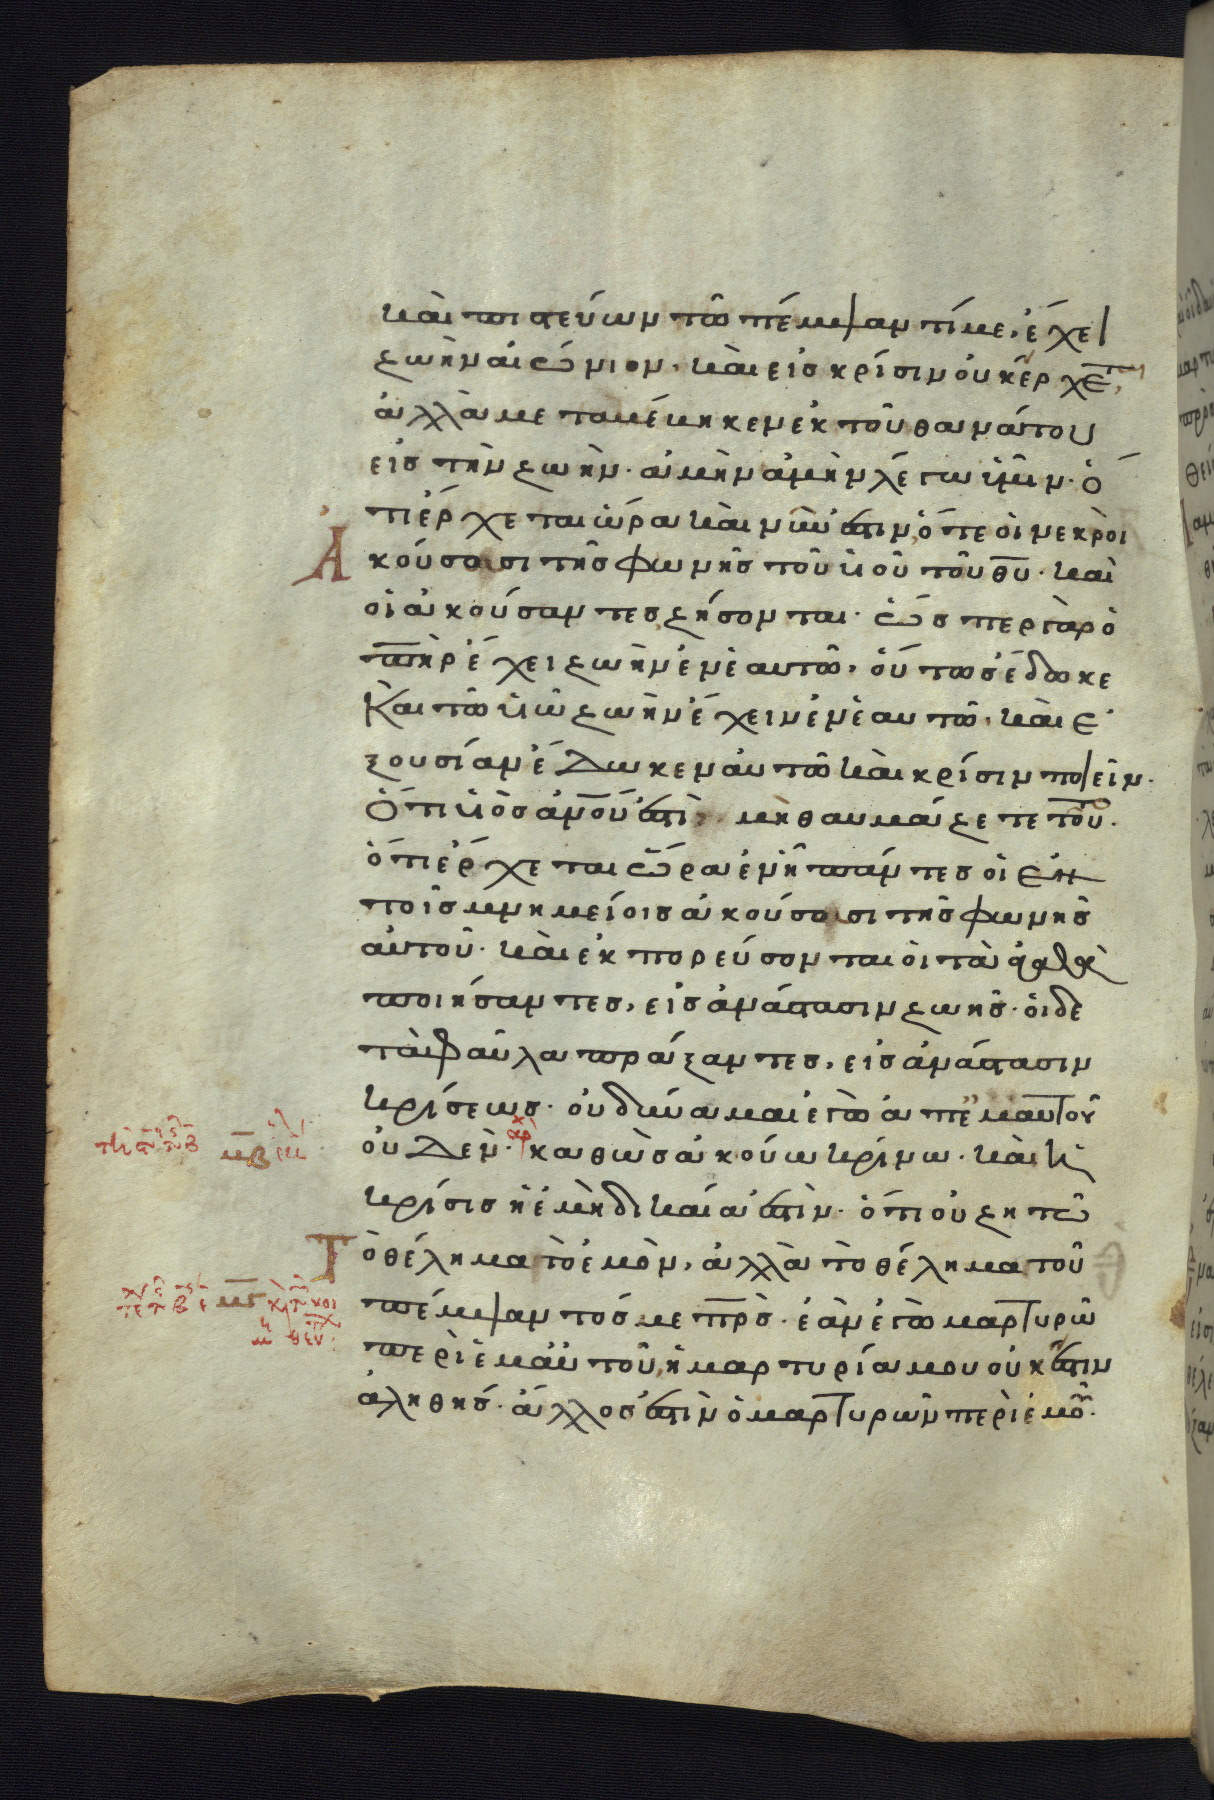 καὶ πιστεύων τῶ πέμψαντί με, ἔχει
ζωὴν αἰώνιον. καὶ εἰς κρίσιν οὐκ ἔρχετ,
ἀλλὰ μεταβέβηκεν ἐκ τοῦ θανάτου
εἰς τὴν ζωήν. ἀμὴν ἀμὴν λέγω ὑμῖν. ὅ
τι ἔρχεται ὥρα καὶ νῦν ἐστιν, ὅτε οἱ νεκροὶ
ἀκούσουσι τῆς φωνῆς τοῦ υἱοῦ τοῦ θυ. καὶ
οἱ ἀκούσαντες ζήσονται. ὥσπερ γὰρ ὁ
πηρ ἔχει ζωὴν ἐν ἑαυτῶ, οὕτως ἔδωκε
Καὶ τῶ υἱῶ ζωὴν ἔχειν ἐν ἑαυτῶ. καὶ ἐ
ξουσίαν ἔδωκεν αὐτῶ καὶ κρίσιν ποιεῖν.
Ὅτι υἱὸς ανου ἐστὶ, μὴ θαυμάζετε τοῦτο.
ὅτι ἔρχεται ὥρα ἐν ἧ πάντες οἱ ἐν
τοῖς μνημείοις ἀκούσουσι τῆς φωνῆς
αὐτοῦ. καὶ ἐκπορεύσονται οἱ τὰ ἀγαθὰ
ποιήσαντες, εἰς ἀνάστασιν ζωῆς. οἱ δὲ
τὰ φαῦλα πράξαντες, εἰς ἀνάστασιν
κρίσεως. οὐ δύναμαι ἐγὼ ἀπ' ἐμαυτοῦ
οὐδέν. καθὼς ἀκούω κρίνω. καὶ ἡ
κρίσις ἡ ἐμὴ δικαία ἐστίν. ὅτι οὐ ζητῶ
Τὸ θέλημα τὸ ἐμὸν, ἀλλὰ τὸ θέλημα τοῦ
πέμψαντός με πρς. ἐὰν ἐγὼ μαρτυρῶ
περὶ ἐμαυτοῦ, ἡ μαρτυρία μου οὐκ ἔστιν
ἀληθής. ἄλλος ἐστὶν ὁ μαρτυρῶν περὶ ἐμοῦ.